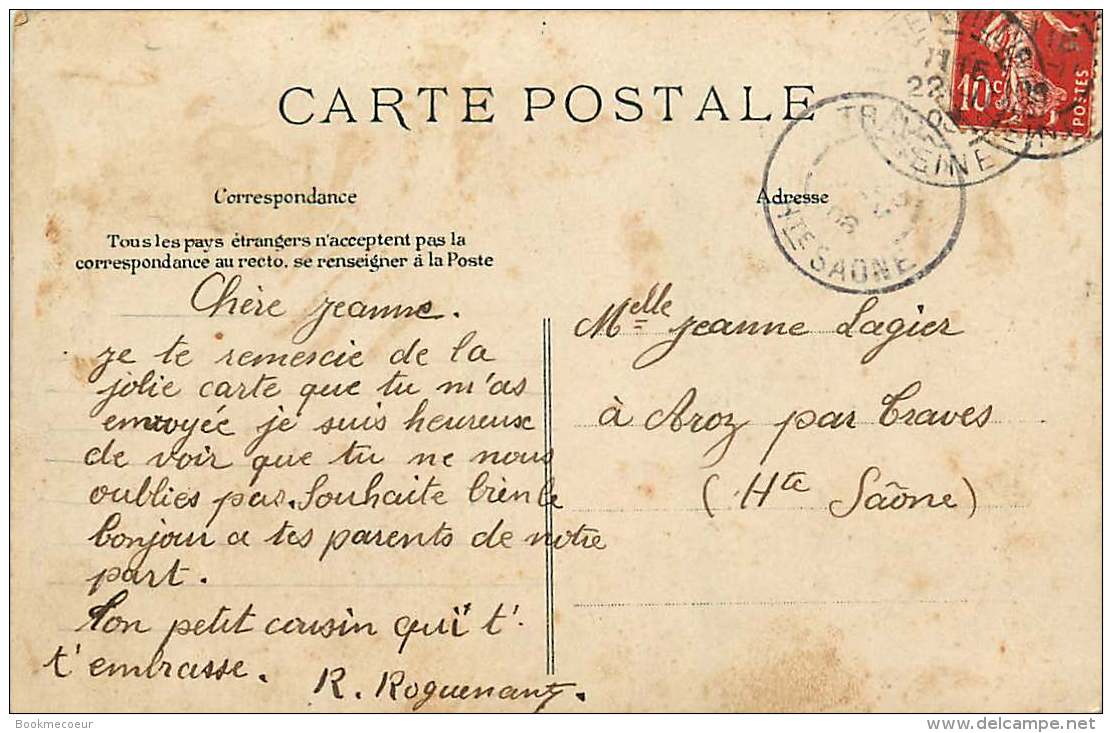 CARTE POSTALE
Correspondance
Tous les pays étrangers n'acceptent pas la
correspondance au recto, se renseigner à la Poste
Chère Jeanne.
Je te remercie de la
jolie carte que tu m'as
envoyée je suis heureuse
de voir que tu ne nous
oublies pas. Souhaite bien le
bonjour a tes parents de notre
part.
Ton petit cousin qui t'
t'embrasse.
R. Roguenant.
Adresse
Melle Jeanne Lagier
à Aroz par Traves
(Hte Saône)
10c
POSTES
SEINE
TRAVES
HTE SAONE
Bookmecoeur
delcampe.net